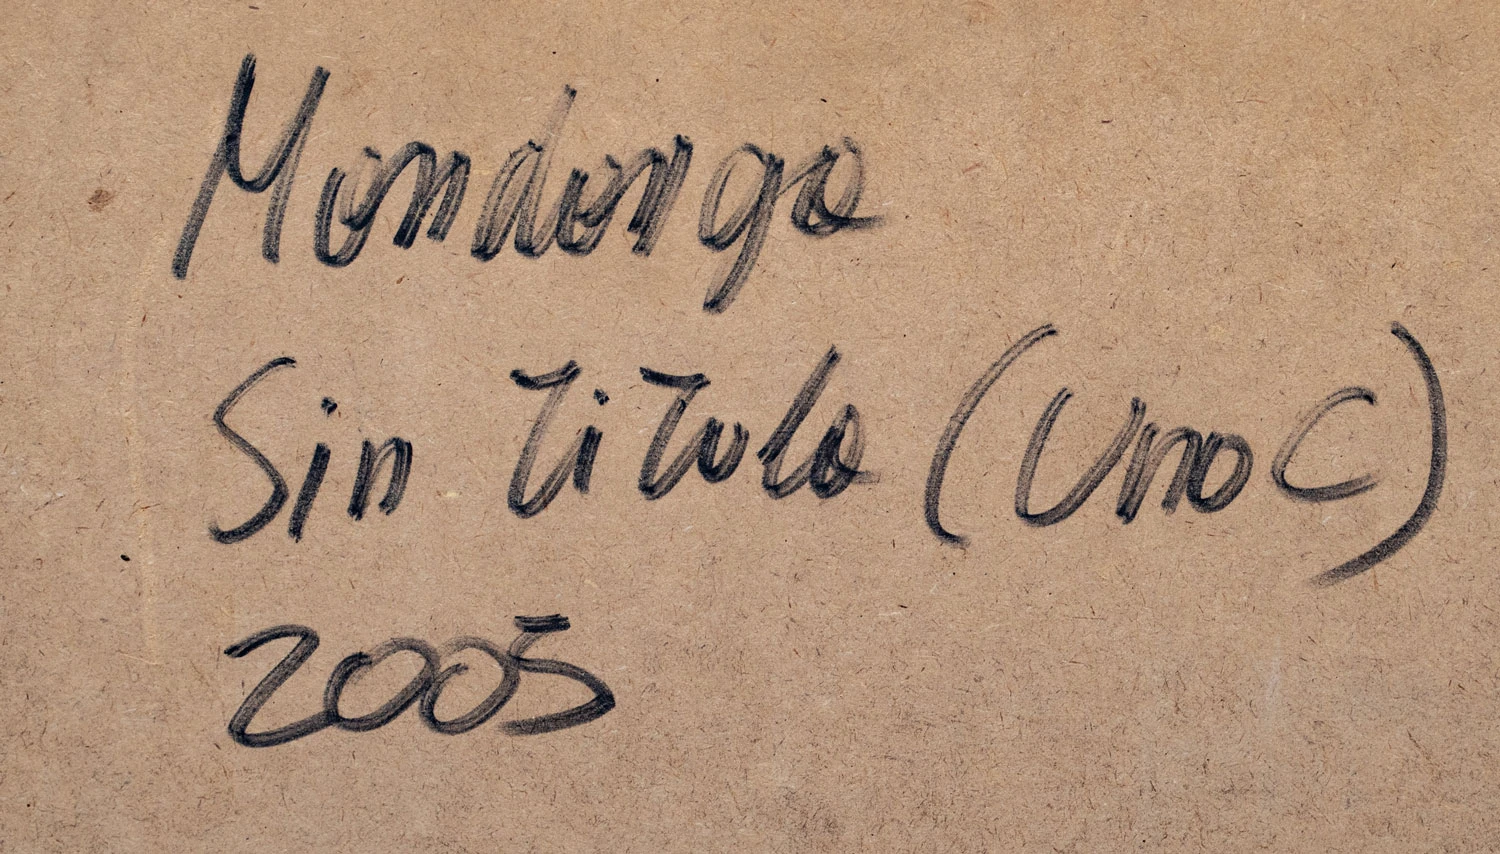 Mondongo
Sin Titulo (Uno C)
2005